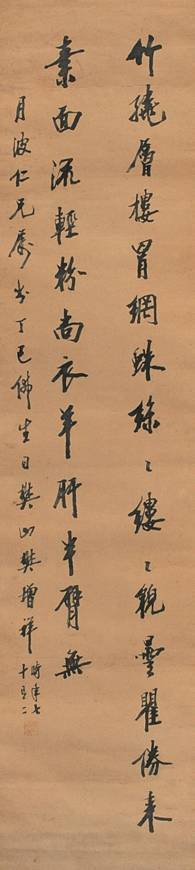 竹繞層樓罥網蛛絲絲縷縷貌曇瞿勝來
素面流輕粉尚衣羊肝半臂無
月波仁兄屬書丁巳佛生日樊山樊增祥
時年七
十有二